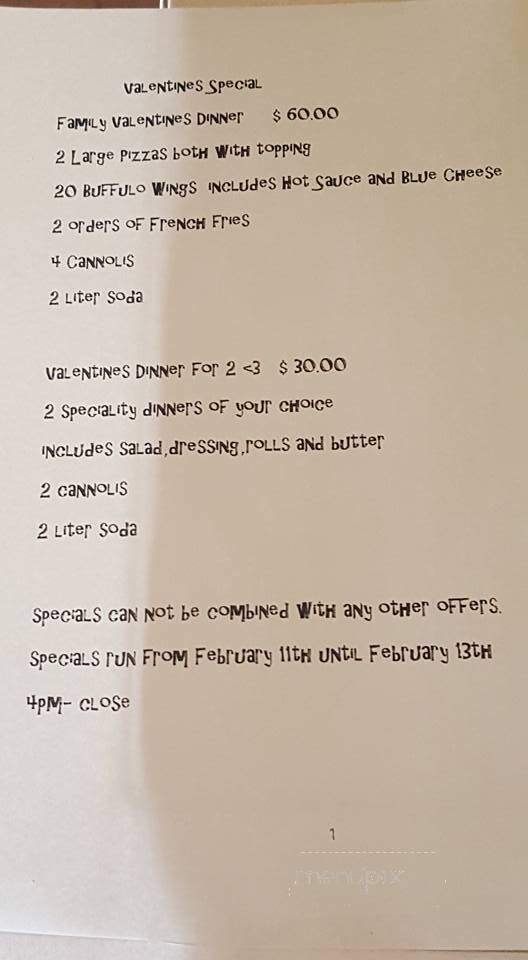 Valentines Special
Family Valentines Dinner $ 60.00
2 Large Pizzas both with topping
20 Buffulo Wings includes Hot Sauce and Blue Cheese
2 orders of French Fries
4 Cannolis
2 Liter Soda
Valentines Dinner For 2 <3 $ 30.00
2 Speciality dinners of your choice
includes Salad,dressing,rolls and butter
2 cannolis
2 Liter Soda
Specials can not be combined with any other offers.
Specials run from February 11th until February 13th
4pm- close
1
menupix